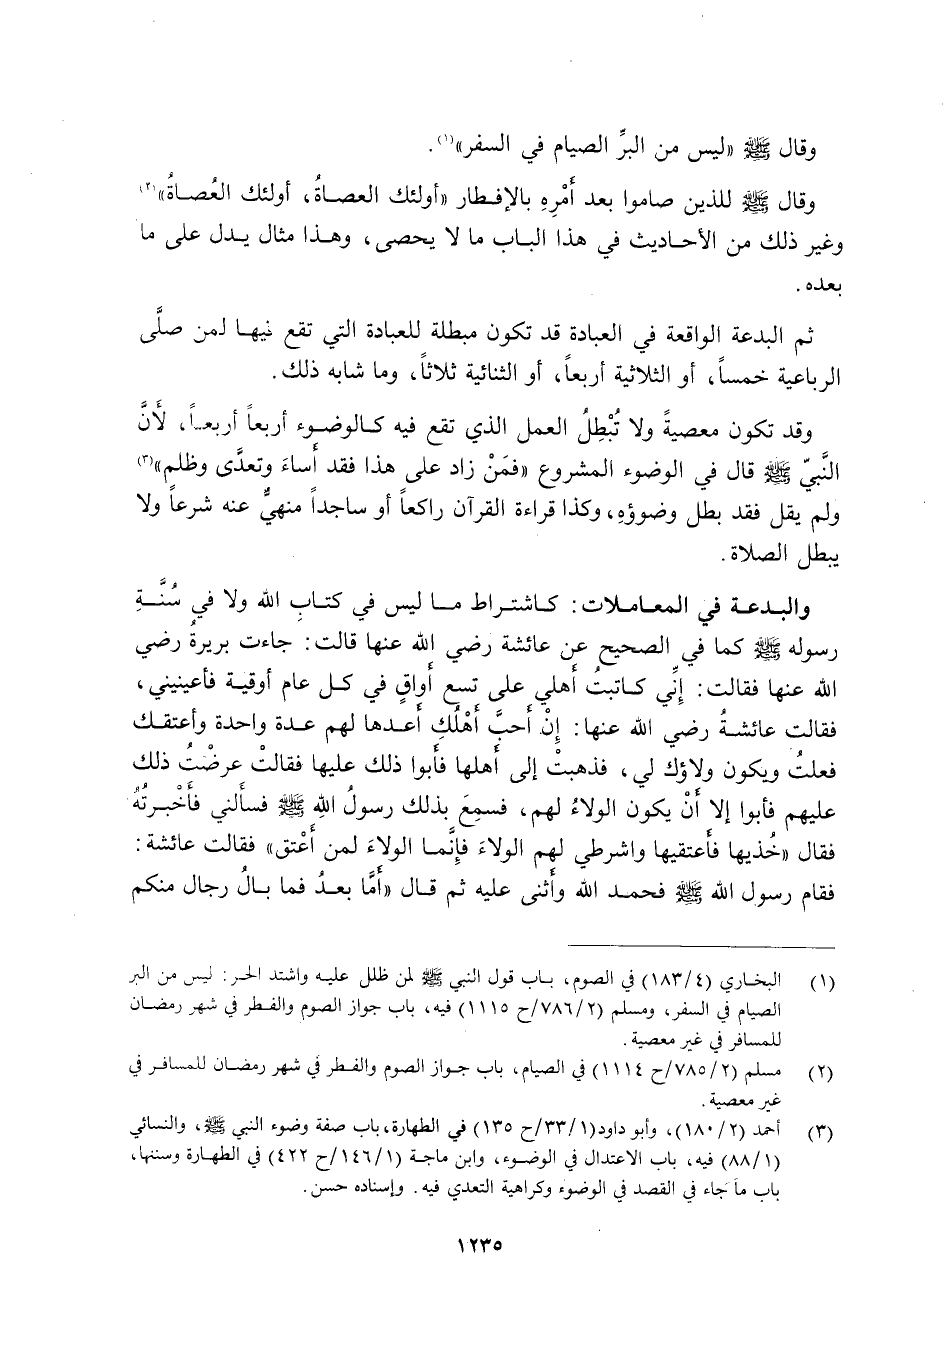 وقال ﷺ «ليس من البرِّ الصيام في السفر»(١).
وقال ﷺ للذين صاموا بعد أَمْرِهِ بالإفطار «أولئك العصاةُ، أولئك العُصاةُ»(٢)
وغير ذلك من الأحاديث في هذا الباب ما لا يحصى، وهذا مثال يدل على ما
بعده.
ثم البدعة الواقعة في العبادة قد تكون مبطلة للعبادة التي تقع فيها لمن صلَّى
الرباعية خمساً، أو الثلاثية أربعاً، أو الثنائية ثلاثاً، وما شابه ذلك.
وقد تكون معصيةً ولا تُبْطِلُ العمل الذي تقع فيه كالوضوء أربعاً أربعاً، لأَنَّ
النَّبيّ ﷺ قال في الوضوء المشروع «فمَنْ زاد على هذا فقد أَساءَ وتعدَّى وظلم»(٣)
ولم يقل فقد بطل وضوؤهِ، وكذا قراءة القرآن راكعاً أو ساجداً منهيٌّ عنه شرعاً ولا
يبطل الصلاة.
والبدعة في المعاملات: كاشتراط ما ليس في كتابِ الله ولا في سُنَّةِ
رسوله ﷺ كما في الصحيح عن عائشة رضي الله عنها قالت: جاءت بريرةُ رضي
الله عنها فقالت: إنِّي كاتبتُ أَهلي على تسع أَواقٍ في كل عام أوقية فأعينيني،
فقالت عائشةُ رضي الله عنها: إنْ أَحبَّ أَهْلُكِ أَعدها لهم عدة واحدة وأعتقك
فعلتُ ويكون ولاؤك لي، فذهبتْ إلى أهلها فأبوا ذلك عليها فقالتْ عرضْتُ ذلك
عليهم فأبوا إلا أَنْ يكون الولاءُ لهم، فسمِعَ بذلك رسولُ الله ﷺ فسألني فأَخْبرتُهُ
فقال «خُذيها فأَعتقيها واشرطي لهم الولاءَ فإنَّما الولاءَ لمن أَعْتق» فقالت عائشة:
فقام رسول الله ﷺ فحمد الله وأَثنى عليه ثم قال «أَمَّا بعدُ فما بالُ رجال منكم
(١) البخاري (١٨٣/٤) في الصوم، باب قول النبي ﷺ لمن ظلل عليه واشتد الحر: ليس من البر
الصيام في السفر، ومسلم (٧٨٦/٢/ح ١١١٥) فيه، باب جواز الصوم والفطر في شهر رمضان
للمسافر في غير معصية.
(٢) مسلم (٧٨٥/٢/ح ١١١٤) في الصيام، باب جواز الصوم والفطر في شهر رمضان للمسافر في
غير معصية.
(٣) أحمد (١٨٠/٢)، وأبو داود(٣٣/١/ح ١٣٥) في الطهارة، باب صفة وضوء النبي ﷺ، والنسائي
(٨٨/١) فيه، باب الاعتدال في الوضوء، وابن ماجة (١٤٦/١/ح ٤٢٢) في الطهارة وسننها،
باب ما جاء في القصد في الوضوء وكراهية التعدي فيه. وإسناده حسن.
١٢٣٥